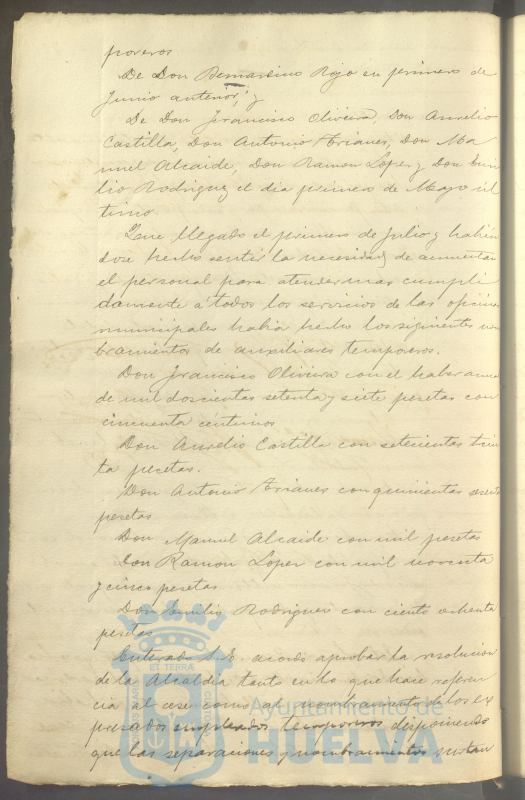 poreros
De Don Bernardino Rojo en primero de
Junio anterior, y
De Don Francisco Oliveira, Don Aurelio
Castilla, Don Antonio Arianes, Don Ma
nuel Alcaide, Don Ramon Lopez y Don Emi
lio Rodriguez el dia primero de Mayo ul
timo.
Que llegado el primero de Julio y habien
dose hecho sentir la necesidad de aumentar
el personal para atender mas cumpli
damente a todos los servicios de las oficinas
municipales habia hecho los siguientes nom
bramientos de auxiliares temporeros.
Don Francisco Oliveira con el haber anual
de mil doscientas setenta y siete pesetas con
cincuenta céntimos
Don Aurelio Castilla con setecientas trein
ta pesetas.
Don Antonio Arianes con quinientas
pesetas
Don Manuel Alcaide con mil pesetas
Don Ramon Lopez con mil noventa
y cinco pesetas
Don Emilio Rodriguez con ciento ochenta
pesetas
Enterado S.E. acordó aprobar la resolucion
de la Alcaldia tanto en lo que hace referen
cia al cese como al nombramiento de los ex
presados empleados temporeros disponiendo
que las separaciones y nombramientos surtan
Ayuntamiento de
HUELVA